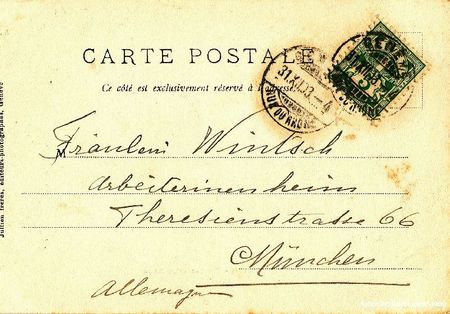 CARTE POSTALE
Ce côté est exclusivement réservé à l'adresse.
Fräulein Wintsch
Arbeiterinenheim
Theresienstrasse 66
München
Allemagne
Jullien frères, éditeurs-photographes, Genève